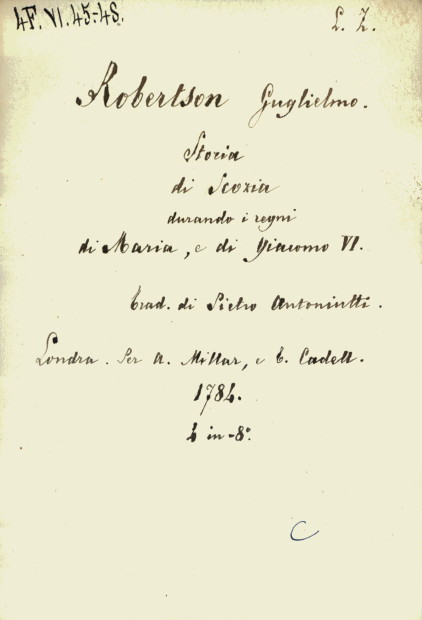 4F.VI.45-48.
L. Z.
Robertson Guglielmo.
Storia
di Scozia
durando i regni
di Maria, e di Giacomo VI.
Trad. di Pietro Antoniutti.
Londra. Per A. Millar, e T. Cadell.
1784.
4 in-8°.
C